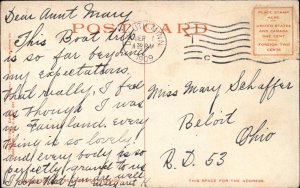 Dear Aunt Mary
POST CARD
This Boat trip
is so far beyond
my expectations,
that really, I feel
as though I was
in Fairyland. every
thing is so lovely!
and every body is so
perfectly grand to us
Miss Mary Schaffer
Beloit
Ohio
R.D. 53
PLACE STAMP
HERE
UNITED STATES
AND CANADA
ONE CENT
FOREIGN TWO
CENTS
THIS SPACE FOR THE ADDRESS.